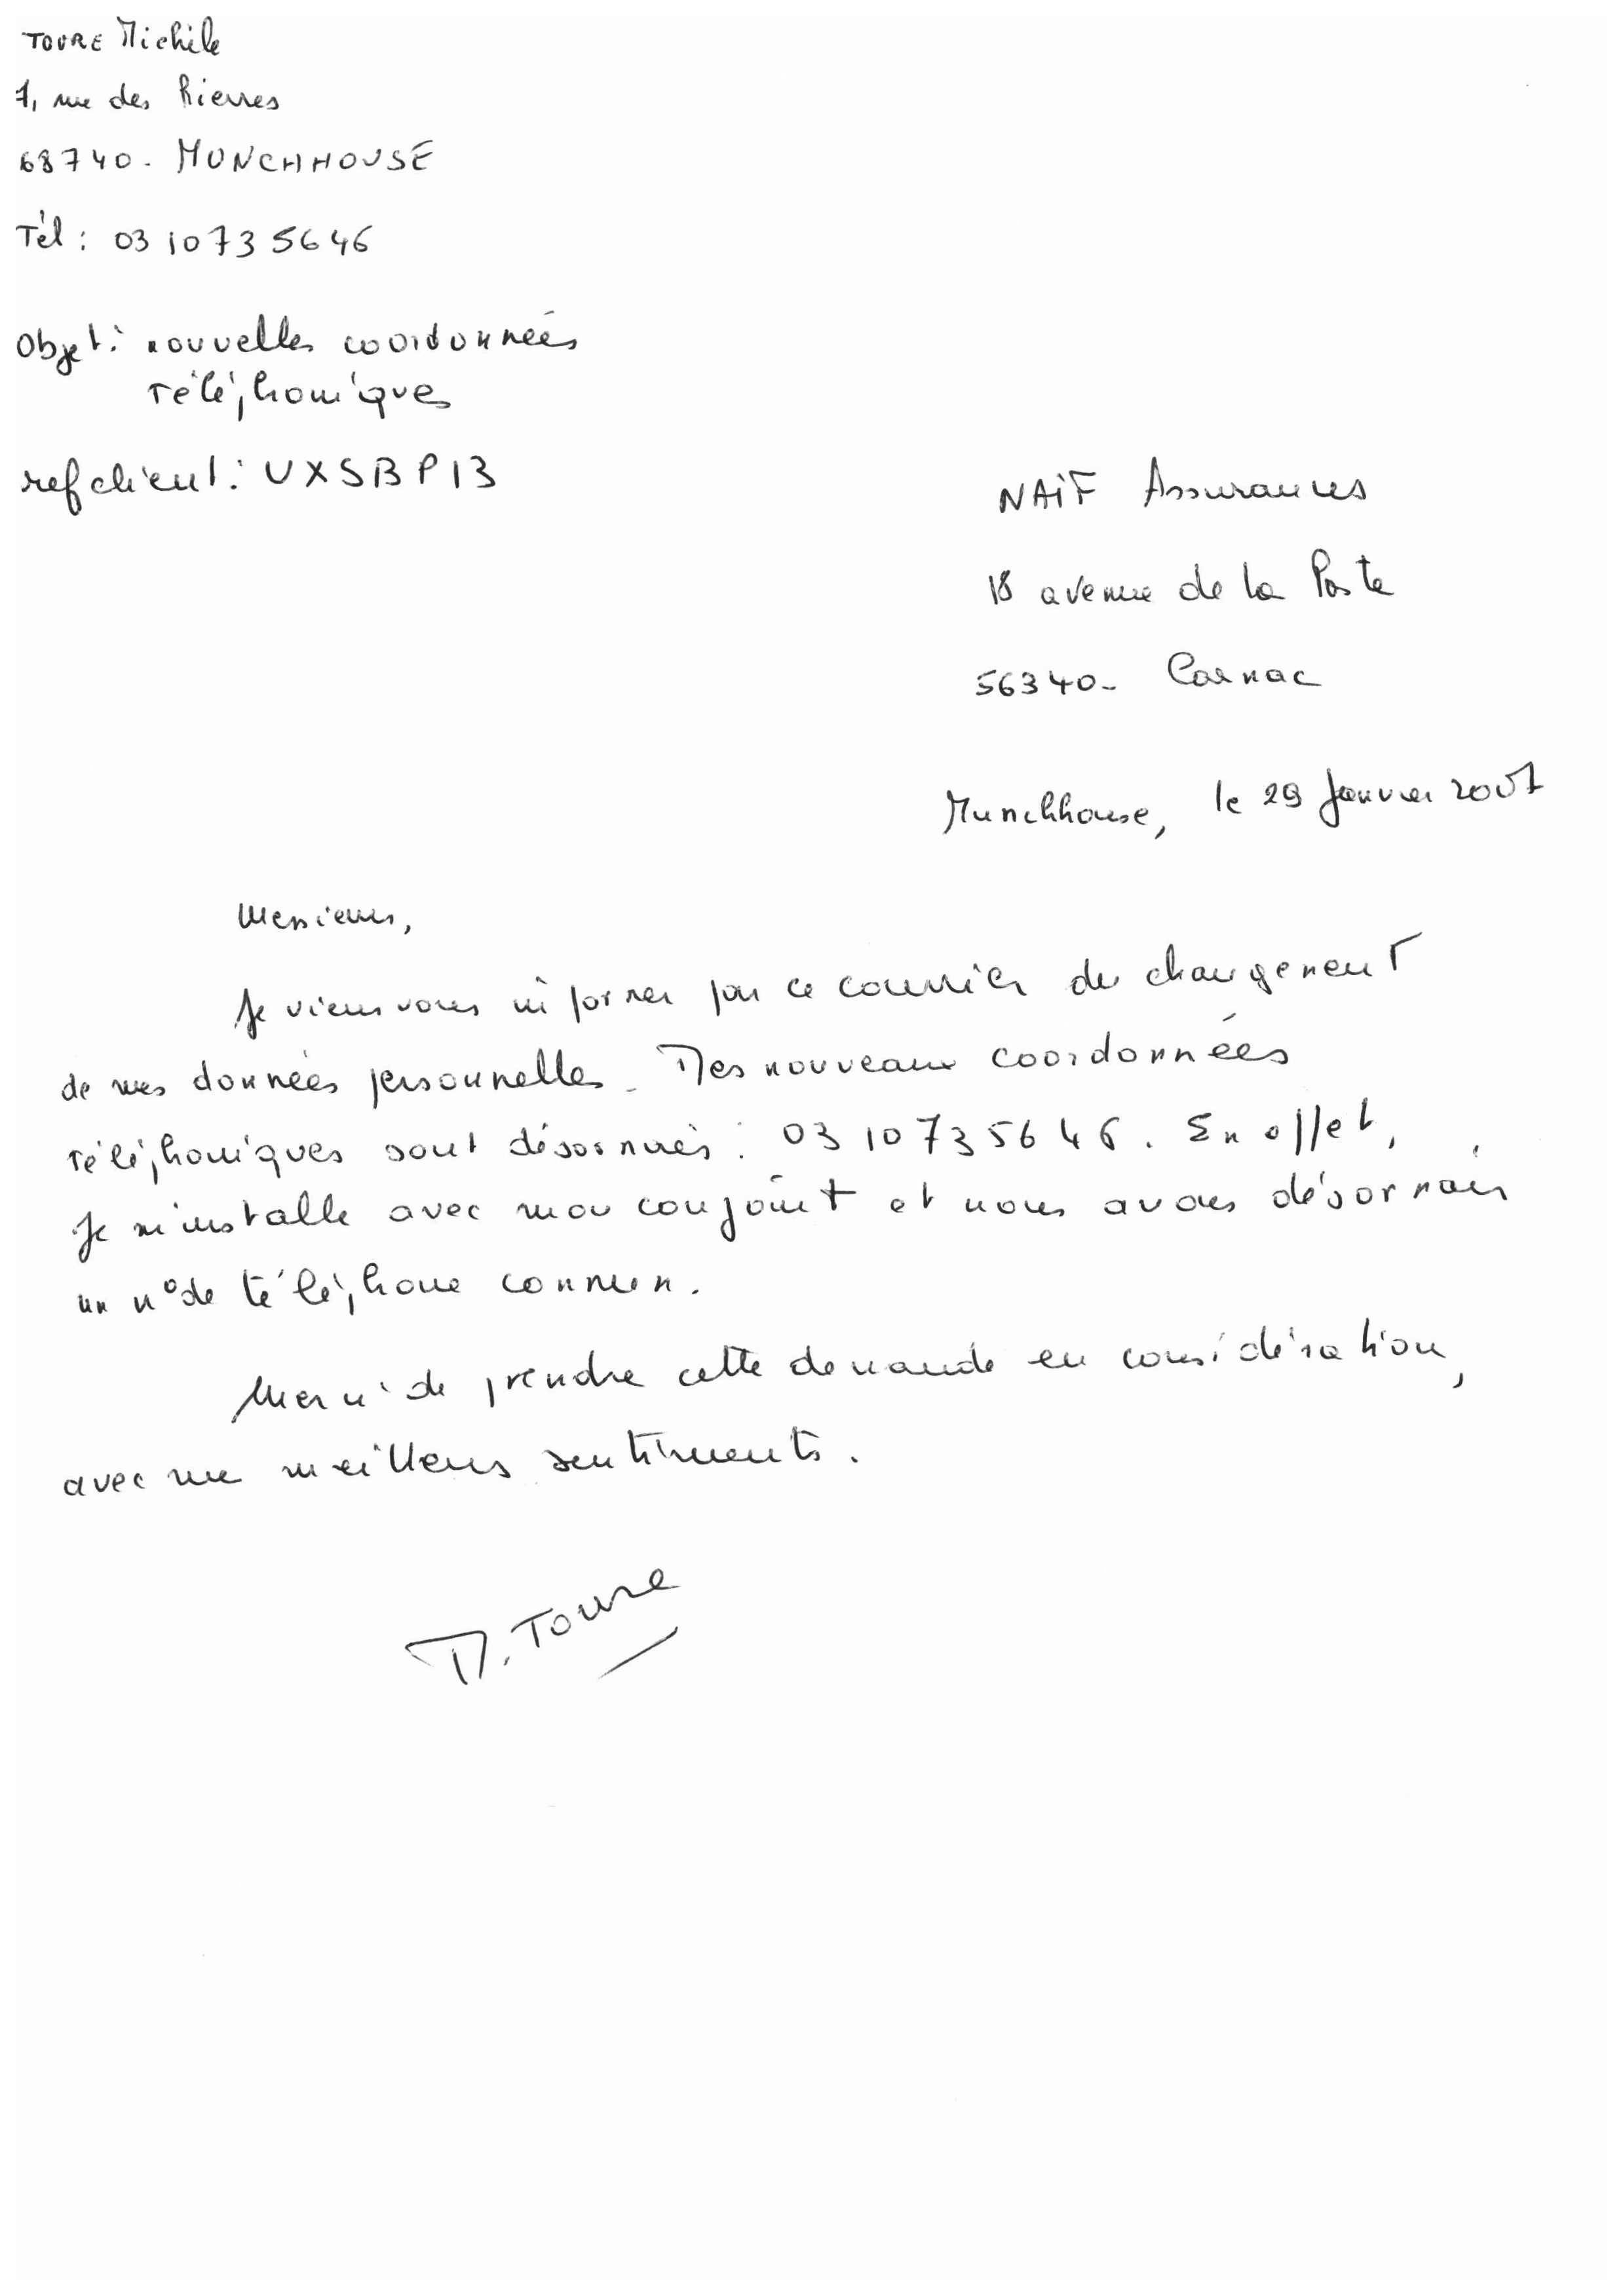 TOURE Michèle
7, rue des Pierres
68740 - MUNCHHOUSE
Tél : 03 10 73 56 46
Objet : nouvelles coordonnées
téléphoniques
ref client : UXSBP13
NAIF Assurances
18 avenue de la Poste
56340 - Carnac
Munchhouse, le 29 janvier 2007
Messieurs,
Je viens vous informer par ce courrier du changement
de mes données personnelles. Mes nouveaux coordonnées
téléphoniques sont désormais : 03 10 73 56 46. En effet,
je m'installe avec mon conjoint et nous avons désormais
un n° de téléphone commun.
Merci de prendre cette demande en considération,
avec me meilleurs sentiments.
M. Toure